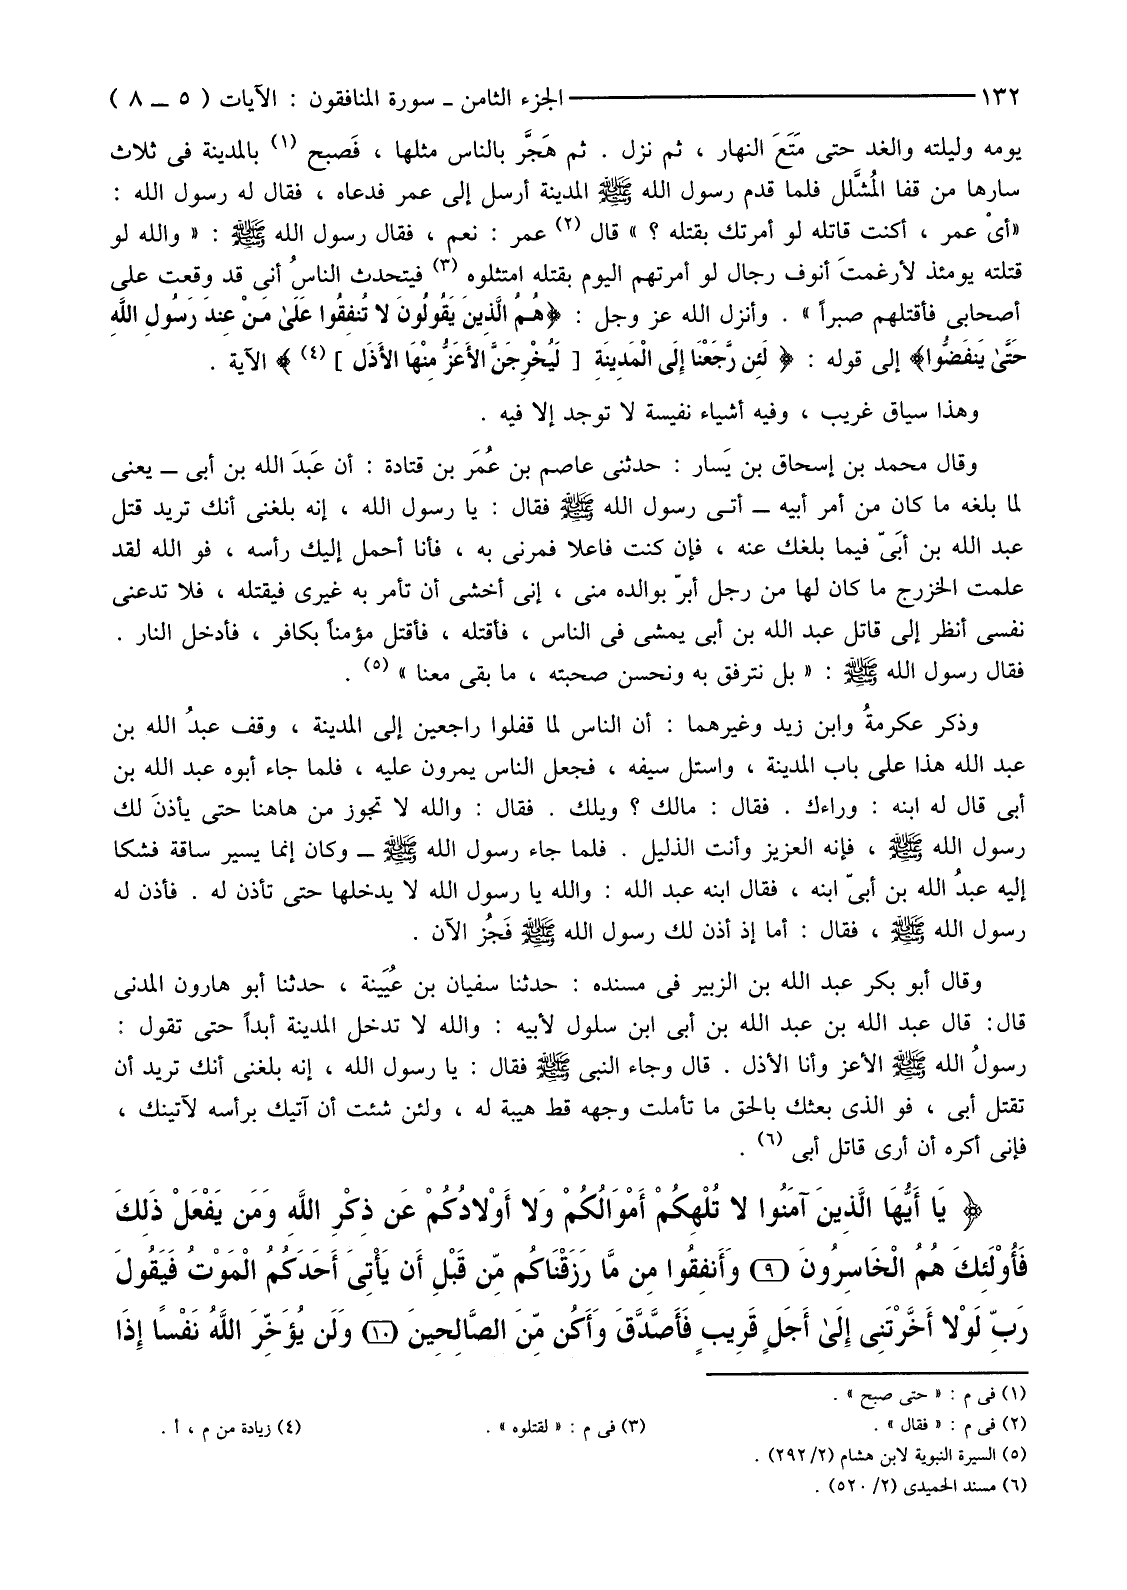 ١٣٢ ــــــــــــــــــ الجزء الثامن ـ سورة المنافقون : الآيات ( ٥ ــ ٨ )
يومه وليلته والغد حتى مَتَعَ النهار ، ثم نزل . ثم هَجَّر بالناس مثلها ، فَصبح (١) بالمدينة فى ثلاث
سارها من قفا المُشَلَّل فلما قدم رسول الله ﷺ المدينة أرسل إلى عمر فدعاه ، فقال له رسول الله :
«أىْ عمر ، أكنت قاتله لو أمرتك بقتله ؟ » قال (٢) عمر : نعم ، فقال رسول الله ﷺ : « والله لو
قتلته يومئذ لأرغمتَ أنوف رجال لو أمرتهم اليوم بقتله امتثلوه (٣) فيتحدث الناسُ أنى قد وقعت على
أصحابى فأقتلهم صبراً » . وأنزل الله عز وجل : ﴿هُمُ الَّذِينَ يَقُولُونَ لا تُنفِقُوا عَلَىٰ مَنْ عِندَ رَسُولِ اللَّهِ
حَتَّىٰ يَنفَضُّوا﴾ إلى قوله : ﴿ لَئِن رَّجَعْنَا إِلَى الْمَدِينَةِ [ لَيُخْرِجَنَّ الأَعَزُّ مِنْهَا الأَذَل ] (٤) ﴾ الآية .
وهذا سياق غريب ، وفيه أشياء نفيسة لا توجد إلا فيه .
وقال محمد بن إسحاق بن يَسار : حدثنى عاصم بن عُمَر بن قتادة : أن عَبَدَ الله بن أبى ــ يعنى
لما بلغه ما كان من أمر أبيه ــ أتـى رسول الله ﷺ فقال : يا رسول الله ، إنه بلغنى أنك تريد قتل
عبد الله بن أبَىّ فيما بلغك عنه ، فإن كنت فاعلا فمرنى به ، فأنا أحمل إليك رأسه ، فو الله لقد
علمت الخزرج ما كان لها من رجل أبرّ بوالده منى ، إنى أخشى أن تأمر به غيرى فيقتله ، فلا تدعنى
نفسى أنظر إلى قاتل عبد الله بن أبى يمشى فى الناس ، فأقتله ، فأقتل مؤمناً بكافر ، فأدخل النار .
فقال رسول الله ﷺ : « بل نترفق به ونحسن صحبته ، ما بقى معنا » (٥) .
وذكر عكرمةُ وابن زيد وغيرهما : أن الناس لما قفلوا راجعين إلى المدينة ، وقف عبدُ الله بن
عبد الله هذا على باب المدينة ، واستل سيفه ، فجعل الناس يمرون عليه ، فلما جاء أبوه عبد الله بن
أبى قال له ابنه : وراءك . فقال : مالك ؟ ويلك . فقال : والله لا تجوز من هاهنا حتى يأذنَ لك
رسول الله ﷺ ، فإنه العزيز وأنت الذليل . فلما جاء رسول الله ﷺ ــ وكان إنما يسير ساقة فشكا
إليه عبدُ الله بن أبىّ ابنه ، فقال ابنه عبد الله : والله يا رسول الله لا يدخلها حتى تأذن له . فأذن له
رسول الله ﷺ ، فقال : أما إذ أذن لك رسول الله ﷺ فَجُز الآن .
وقال أبو بكر عبد الله بن الزبير فى مسنده : حدثنا سفيان بن عُيَينة ، حدثنا أبو هارون المدنى
قال: قال عبد الله بن عبد الله بن أبى ابن سلول لأبيه : والله لا تدخل المدينة أبداً حتى تقول :
رسولُ الله ﷺ الأعز وأنا الأذل . قال وجاء النبى ﷺ فقال : يا رسول الله ، إنه بلغنى أنك تريد أن
تقتل أبى ، فو الذى بعثك بالحق ما تأملت وجهه قط هيبة له ، ولئن شئت أن آتيك برأسه لآتينك ،
فإنى أكره أن أرى قاتل أبى (٦) .
﴿ يَا أَيُّهَا الَّذِينَ آمَنُوا لا تُلْهِكُمْ أَمْوَالُكُمْ وَلا أَوْلادُكُمْ عَن ذِكْرِ اللَّهِ وَمَن يَفْعَلْ ذَلِكَ
فَأُوْلَئِكَ هُمُ الْخَاسِرُونَ (٩) وَأَنفِقُوا مِن مَّا رَزَقْنَاكُم مِّن قَبْلِ أَن يَأْتِىَ أَحَدَكُمُ الْمَوْتُ فَيَقُولَ
رَبِّ لَوْلا أَخَّرْتَنِى إِلَىٰ أَجَلٍ قَرِيبٍ فَأَصَّدَّقَ وَأَكُن مِّنَ الصَّالِحِينَ (١٠) وَلَن يُؤَخِّرَ اللَّهُ نَفْسًا إِذَا
(١) فى م : « حتى صبح » .
(٢) فى م : « فقال » . (٣) فى م : « لقتلوه » . (٤) زيادة من م ، أ .
(٥) السيرة النبوية لابن هشام (٢/ ٢٩٢) .
(٦) مسند الحميدى (٢/ ٥٢٠) .